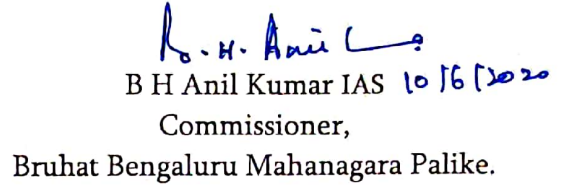 B. H. Anil
B H Anil Kumar IAS 10/6/2020
Commissioner,
Bruhat Bengaluru Mahanagara Palike.